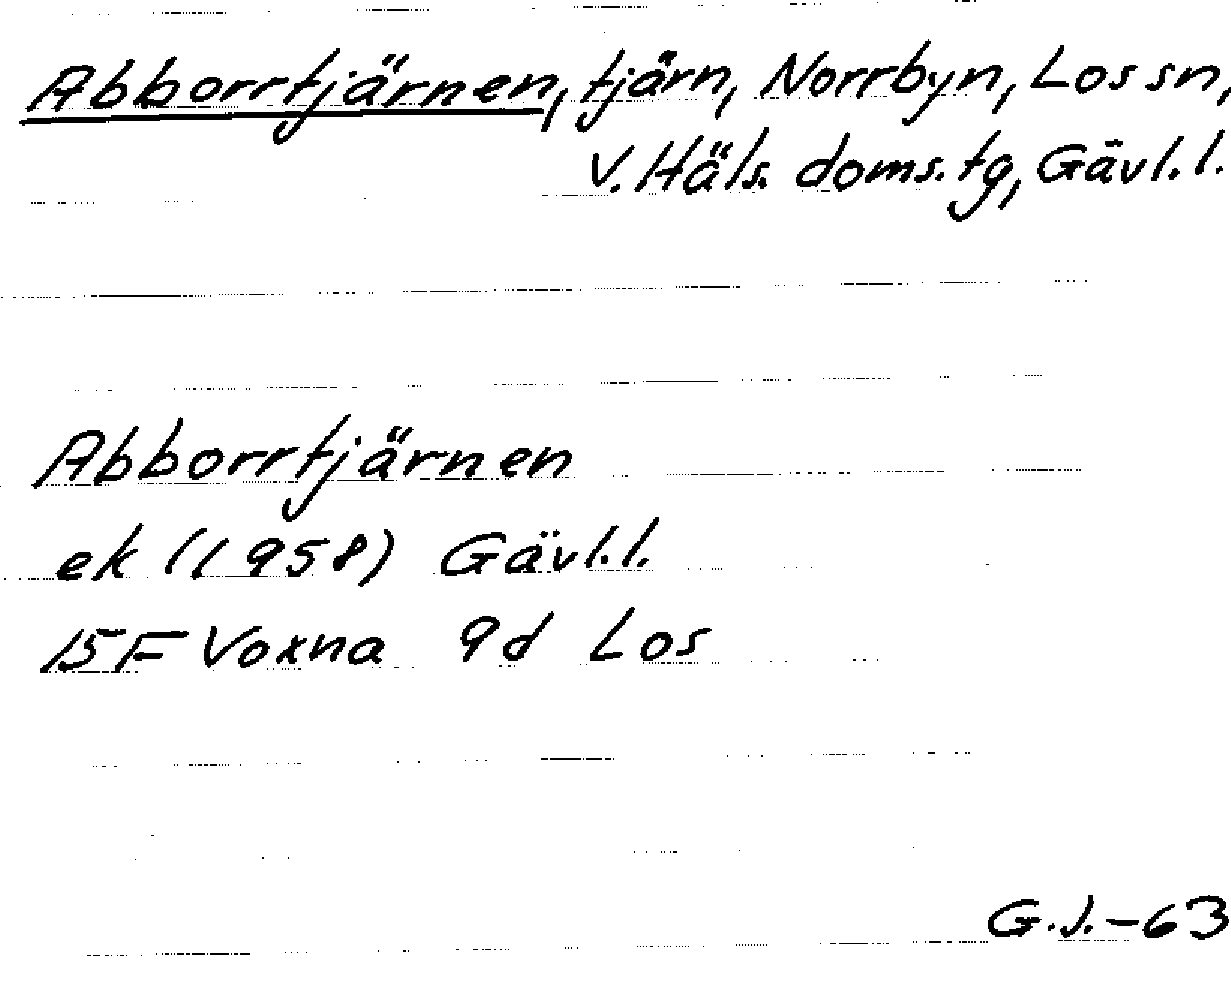 Abborrtjärnen, tjärn, Norrbyn, Los sn,
V. Häls. doms. tg, Gävl. l.
Abborrtjärnen
ek (1958) Gävl. l.
15 F Voxna 9d Los
G.J.-63